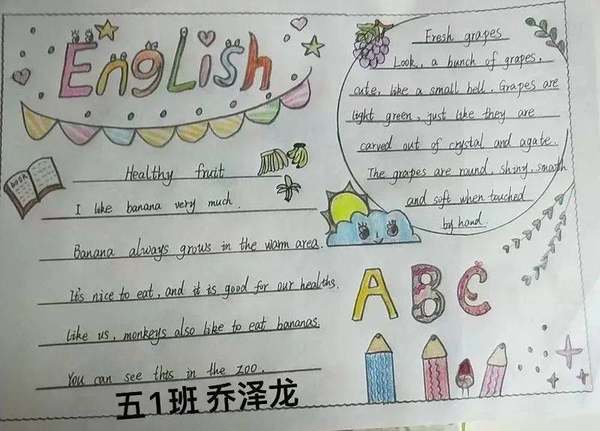 English
Healthy fruit
I like banana very much.
Banana always grows in the warm area.
It's nice to eat, and it is good for our healths.
Like us, monkeys also like to eat bananas.
You can see this in the zoo.
Fresh grapes
Look, a bunch of grapes,
cute, like a small bell. Grapes are
light green, just like they are
carved out of crystal and agate.
The grapes are round, shiny, smooth
and soft when touched
by hand.
BOOK
ABC
五1班 乔泽龙